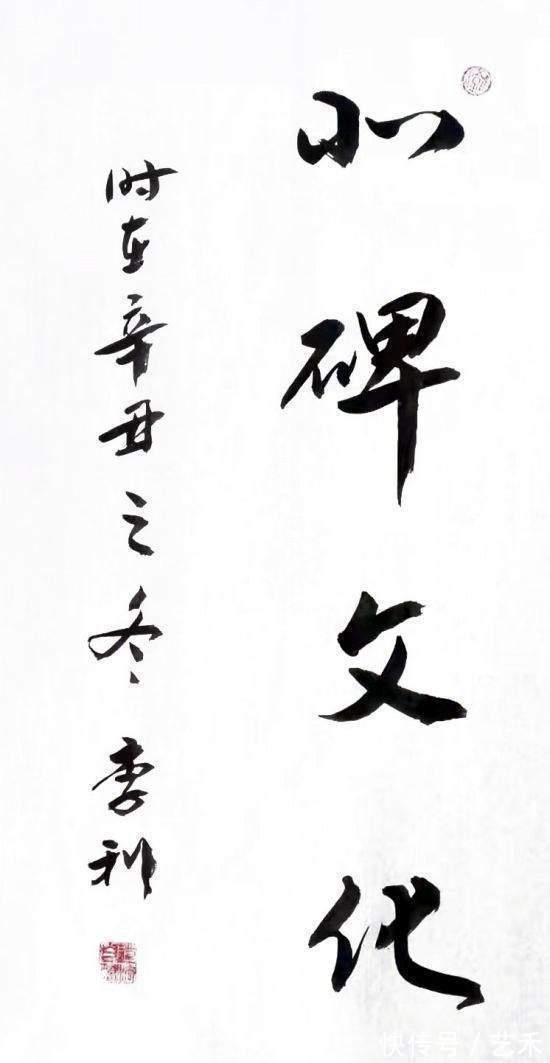 北碑文化
时在辛丑之冬 李利
快传号/艺禾